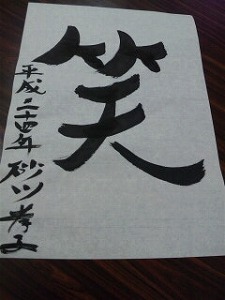 笑
平成二十四年 砂川孝子